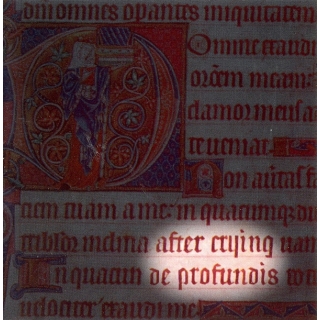 omnes opantes iniquitatem
Omine exaudi
orõem meam:
clamor meus a
te ueniat.
Non auertas fa
ciem tuam a me: in quacumq; di
inclina after crying
In quacun de profundis
uelociter exaudi me